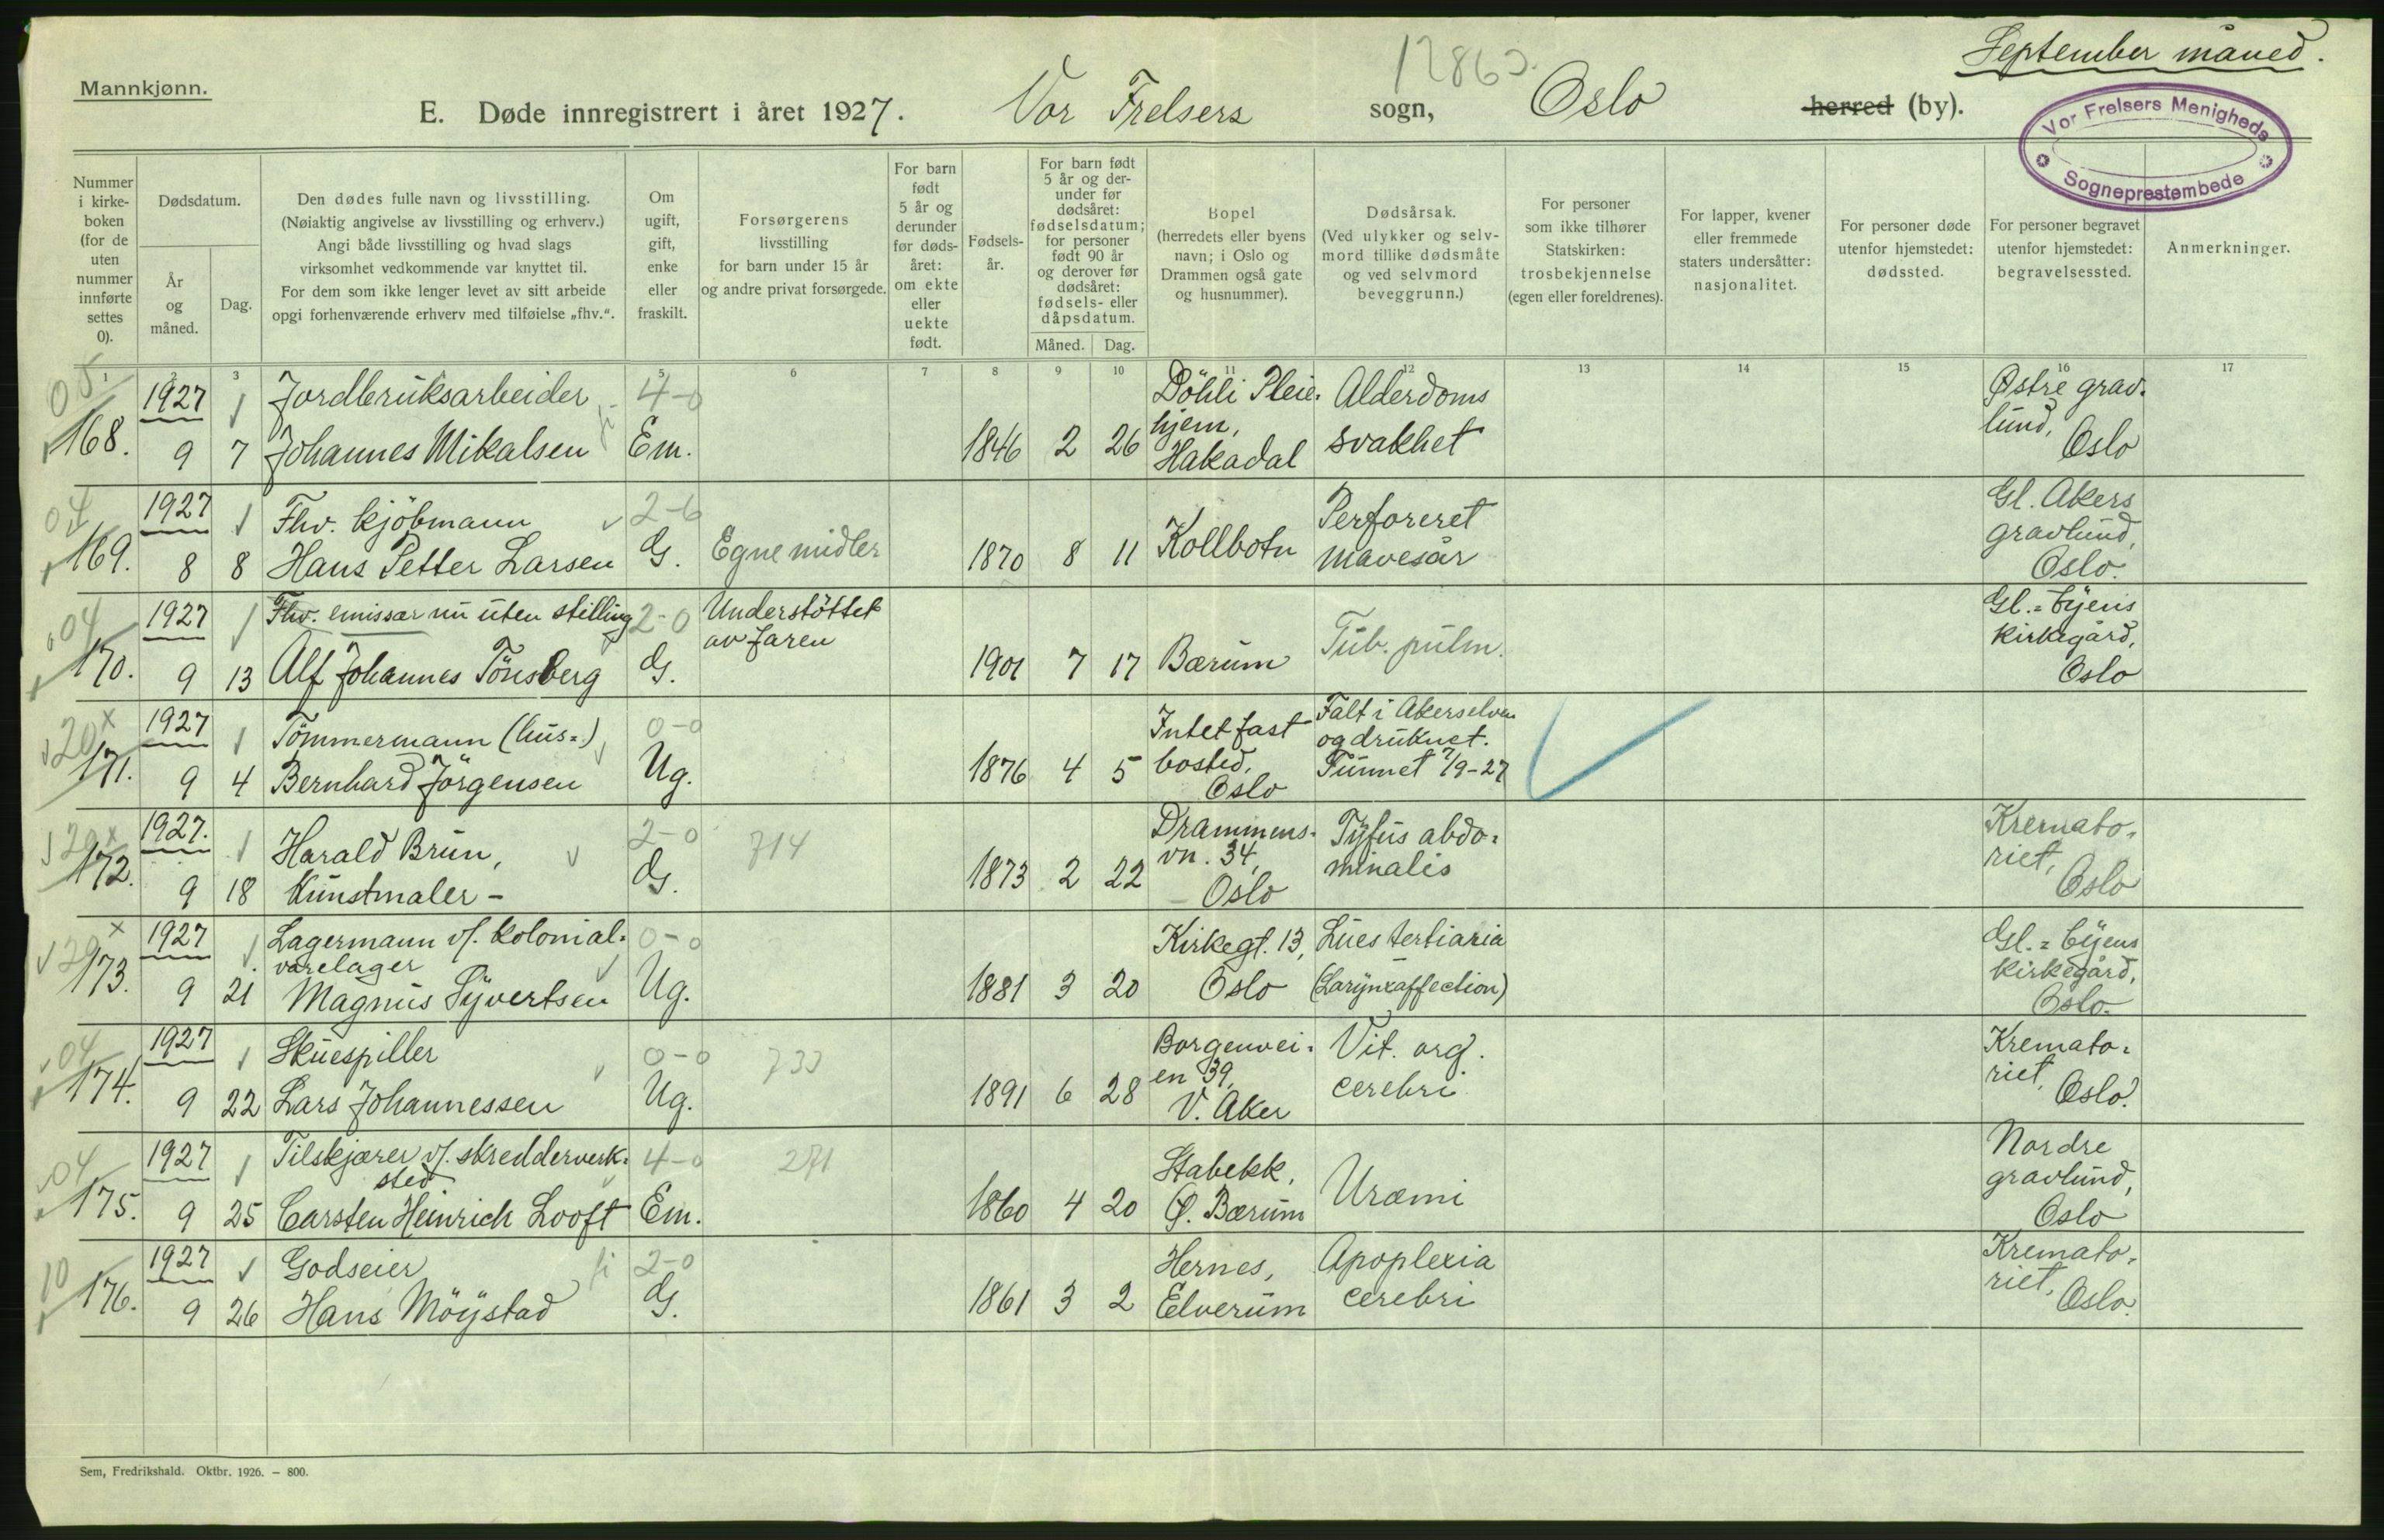 September måned.
12863.
Mannkjønn.
E. Døde innregistrert i året 1927. Vor Frelsers sogn, Oslo herred (by).
Vor Frelsers Menigheds
Sogneprestembede
Nummer
i kirke-
boken
(for de
uten
nummer
innførte
settes
0).
Dødsdatum.
År
og
måned.
Dag.
Den dødes fulle navn og livsstilling.
(Nøiaktig angivelse av livsstilling og erhverv.)
Angi både livsstilling og hvad slags
virksomhet vedkommende var knyttet til.
For dem som ikke lenger levet av sitt arbeide
opgi forhenværende erhverv med tilføielse „fhv.“.
Om
ugift,
gift,
enke
eller
fraskilt.
Forsørgerens
livsstilling
for barn under 15 år
og andre privat forsørgede.
For barn
født
5 år og
derunder
før døds-
året:
om ekte
eller
uekte
født.
Fødsels-
år.
For barn født
5 år og der-
under før
dødsåret:
fødselsdatum;
for personer
født 90 år
og derover før
dødsåret:
fødsels- eller
dåpsdatum.
Måned. Dag.
Bopel
(herredets eller byens
navn; i Oslo og
Drammen også gate
og husnummer).
Dødsårsak.
(Ved ulykker og selv-
mord tillike dødsmåte
og ved selvmord
beveggrunn.)
For personer
som ikke tilhører
Statskirken:
trosbekjennelse
(egen eller foreldrenes).
For lapper, kvener
eller fremmede
staters undersåtter:
nasjonalitet.
For personer døde
utenfor hjemstedet:
dødssted.
For personer begravet
utenfor hjemstedet:
begravelsessted.
Anmerkninger.
1 2 3 5 6 7 8 9 10 11 12 13 14 15 16 17
168.
1927
9 7
Jordbruksarbeider
Johannes Mikalsen
4-0
Em.
1846 2 26
Döhli Pleie-
hjem,
Hakadal
Alderdoms
svakhet
Østre grav-
lund,
Oslo
04
169.
1927
8 8
Fhv. kjöbmann
Hans Petter Larsen
2-6
G.
Egne midler
1870 8 11
Kollbotn
Perforeret
mavesår
Gl. Akers
gravlund,
Oslo.
04
170.
1927
9 13
Fhv. emissær nu uten stilling
Alf Johannes Tönsberg
2-0
G.
Understöttet
av faren
1901 7 17
Bærum
Tub. pulm.
Gl.=byens
kirkegård,
Oslo
20 x
171.
1927
9 4
Tömmermann (hus=)
Bernhard Jörgensen
0-0
Ug.
1876 4 5
Intet fast
bosted,
Oslo
Falt i Akerselven
og druknet.
Funnet 7/9-27
172.
1927.
9 18
Harald Brun,
Kunstmaler -
2-0
G.
714
1873 2 22
Drammens-
vn. 34,
Oslo
Tyfus abdo=
minalis
Kremato=
riet,
Oslo
173.
1927
9 21
Lagermann v/. kolonial-
varelager
Magnus Syvertsen
0-0
Ug.
1881 3 20
Kirkegt. 13,
Oslo
Lues tertiaria
(Larynxaffection)
Gl.=byens
kirkegård,
Oslo.
04
174.
1927
9 22
Skuespiller
Lars Johannessen
0-0
Ug.
733
1891 6 28
Borgenvei-
en 39,
V. Aker
Vit. org.
cerebri
Kremato=
riet,
Oslo.
04
175.
1927
9 25
Tilskjærer v/. skredderverk-
sted
Carsten Heinrich Looft
4-0
Em.
271
1860 4 20
Stabekk,
Ø. Bærum
Uræmi
Nordre
gravlund,
Oslo
10
176.
1927
9 26
Godseier
Hans Möystad
2-0
G.
1861 3 2
Hernes,
Elverum
Apoplexia
cerebri
Kremato=
riet,
Oslo.
Sem, Fredrikshald. Oktbr. 1926. — 800.